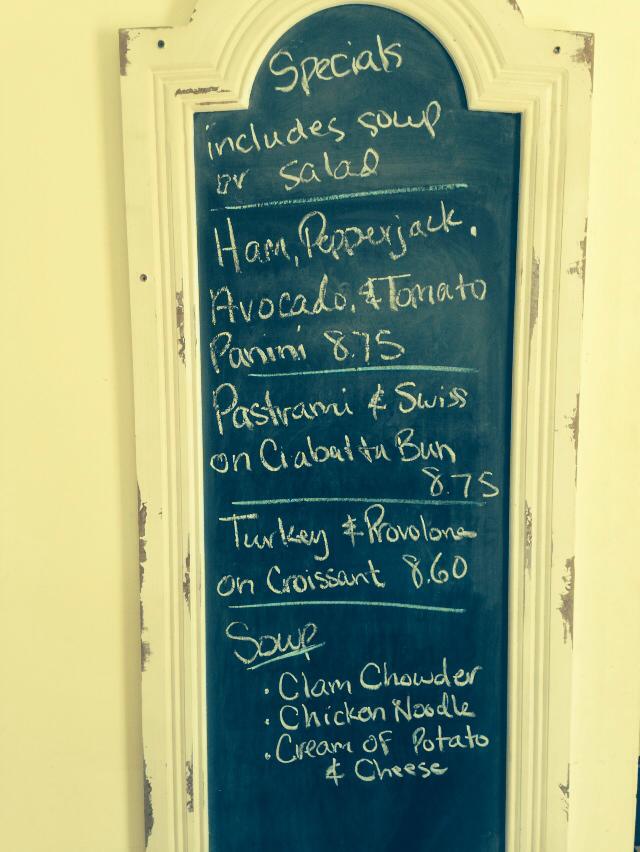 Specials
includes soup
or salad
Ham, Pepperjack,
Avocado, & Tomato
Panini 8.75
Pastrami & Swiss
on Ciabatta Bun
8.75
Turkey & Provolone
on Croissant 8.60
Soup
• Clam Chowder
• Chicken Noodle
• Cream of Potato
& Cheese